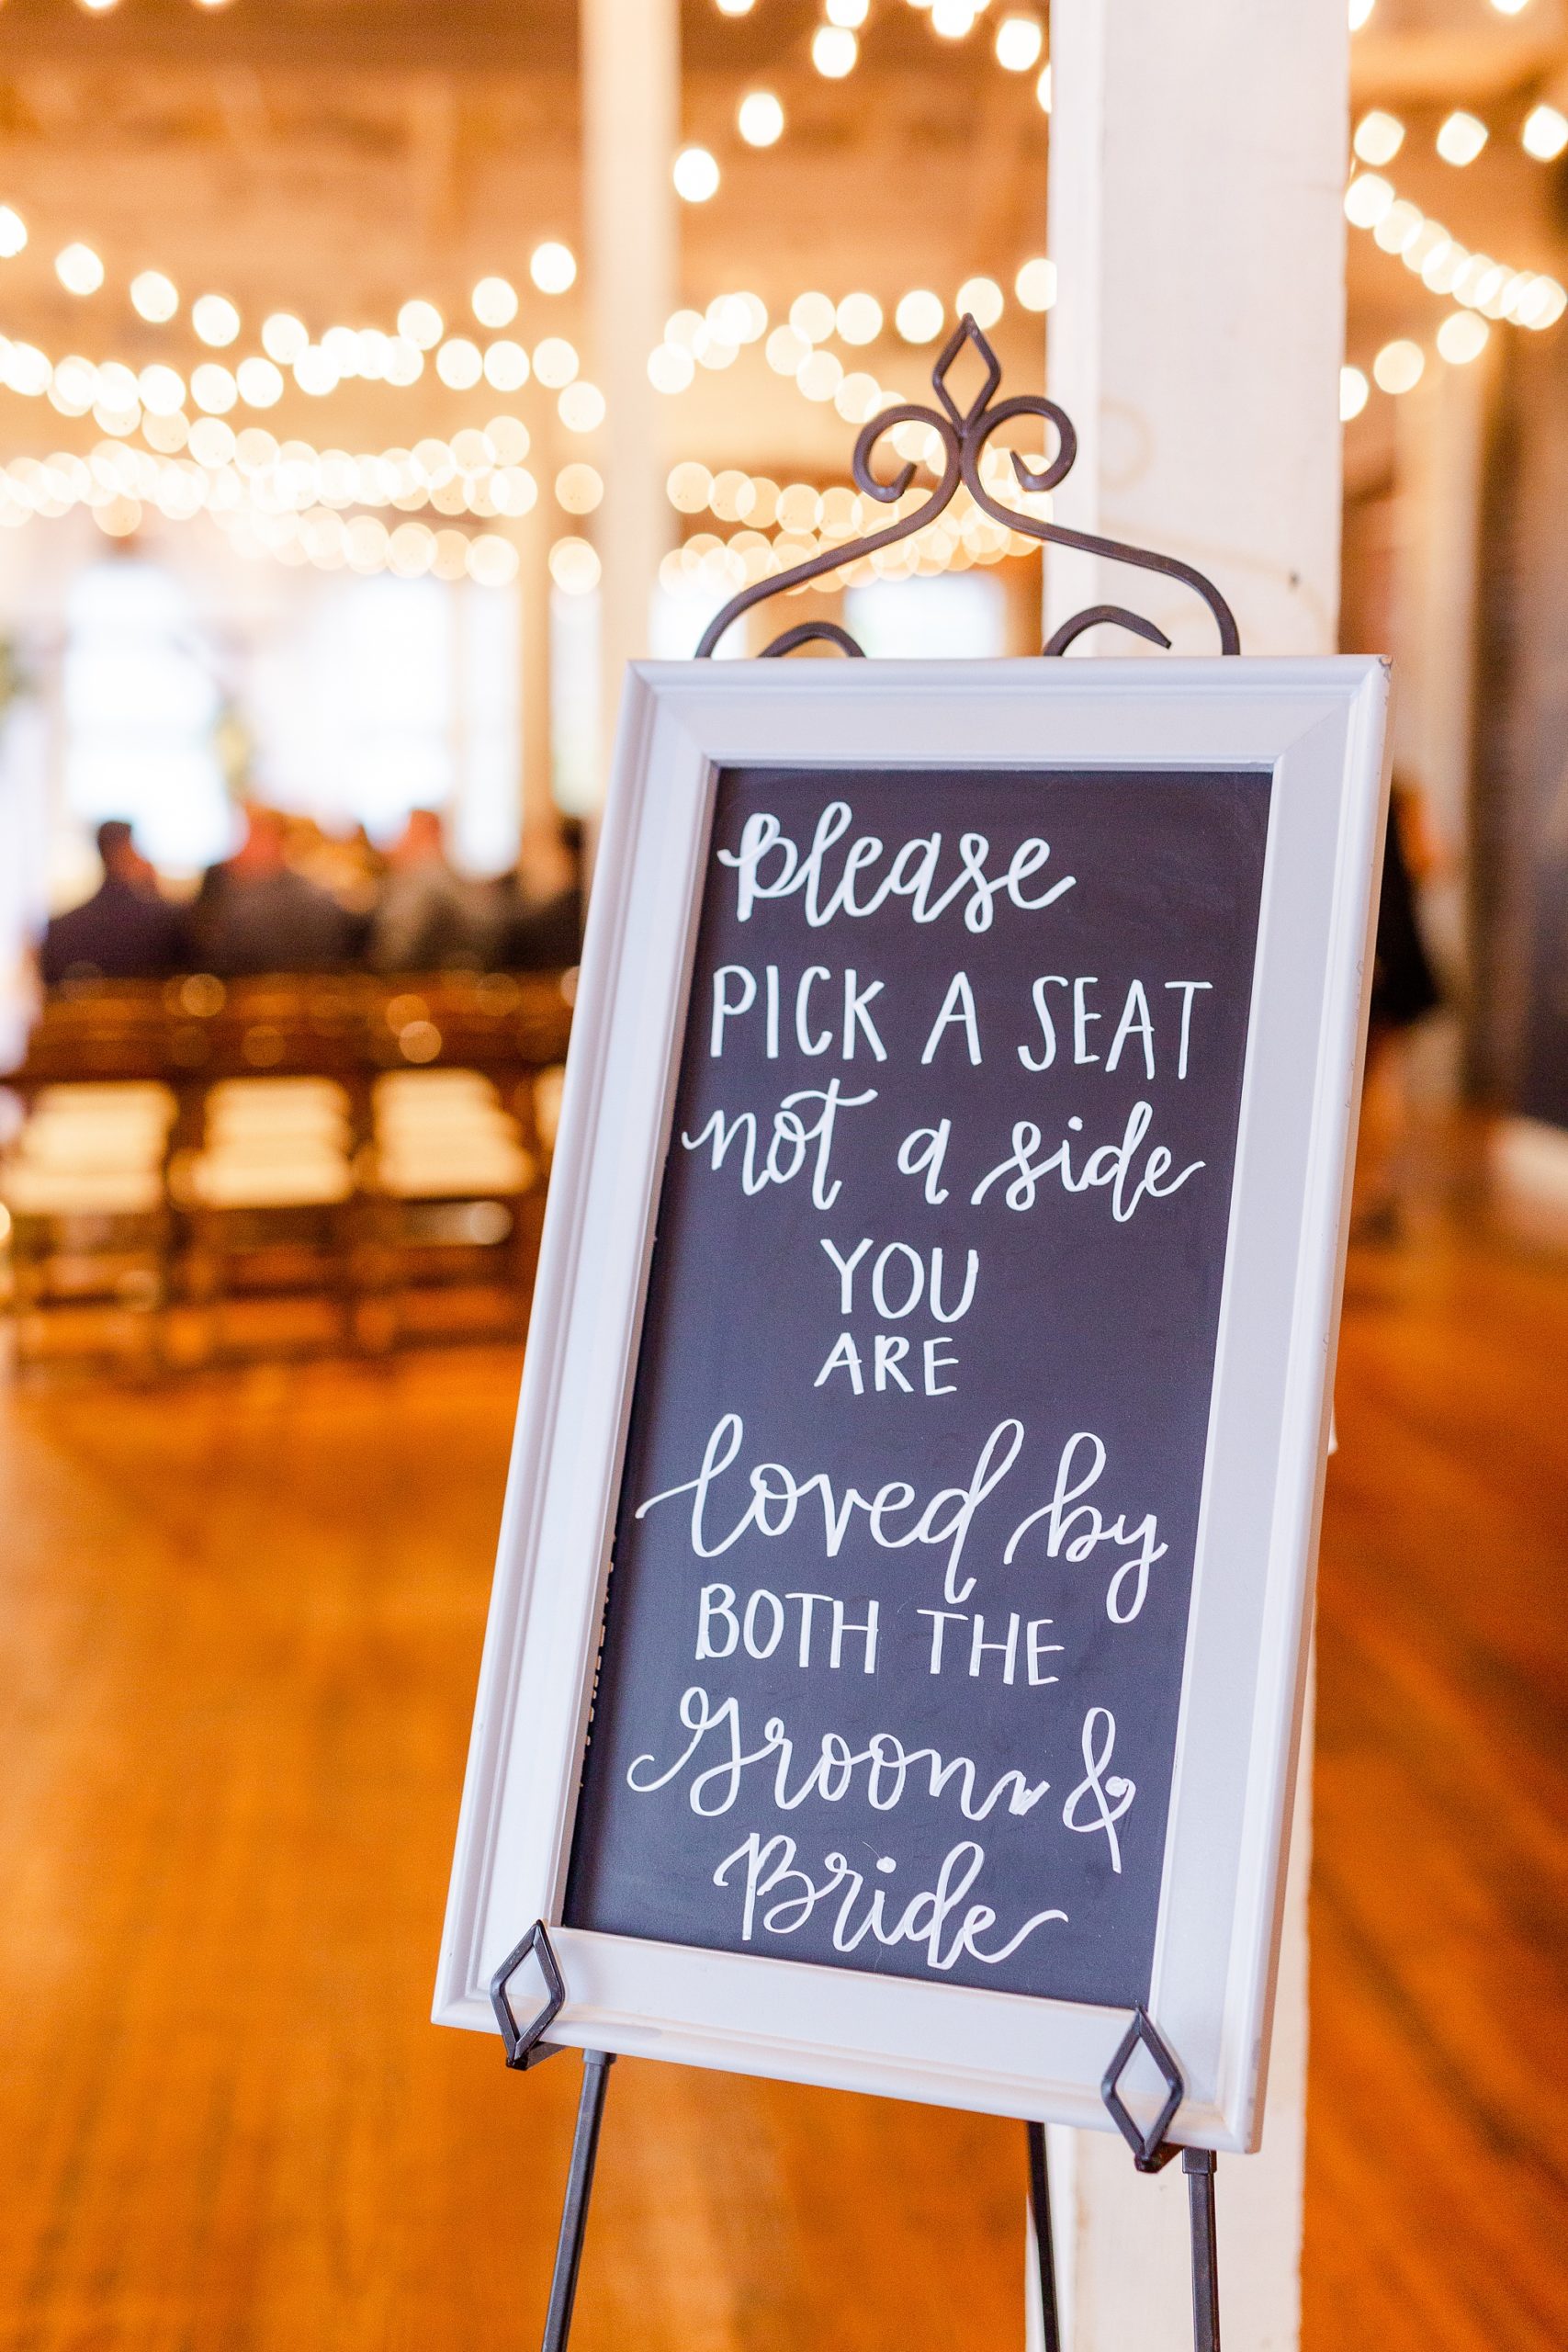 please
PICK A SEAT
not a side
YOU
ARE
loved by
BOTH THE
Groom &
Bride